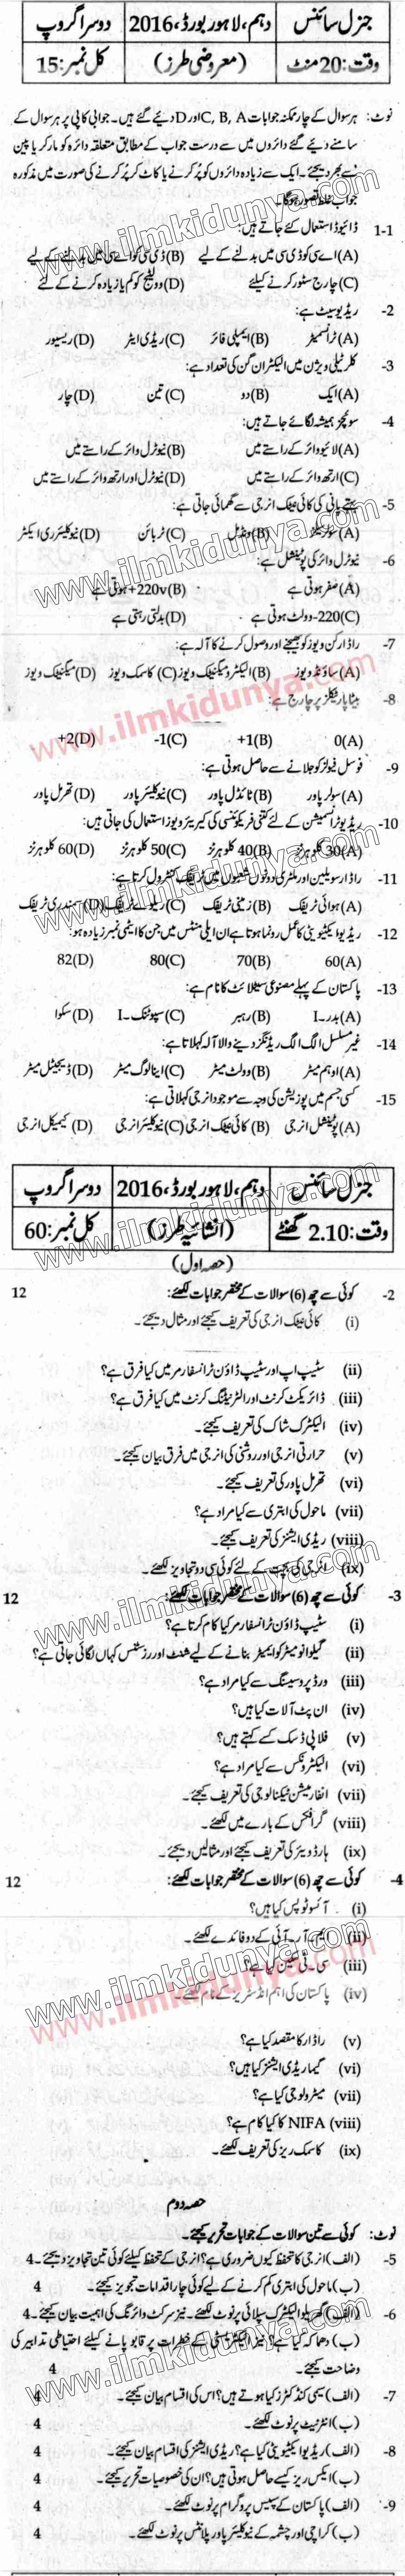 جنرل سائنس | دہم، لاہور بورڈ، 2016 | دوسرا گروپ
وقت: 20 منٹ | (معروضی طرز) | کل نمبر: 15
نوٹ: ہر سوال کے چار ممکنہ جوابات C, B, A اور D دیئے گئے ہیں۔ جوابی کاپی پر ہر سوال کے
سامنے دیئے گئے دائروں میں سے درست جواب کے مطابق متعلقہ دائرہ کو مارکر یا پین
سے بھر دیجئے۔ ایک سے زیادہ دائروں کو پُر کرنے یا کاٹ کر پُر کرنے کی صورت میں مذکورہ
جواب غلط تصور ہوگا۔
1-1 ڈائیوڈ استعمال کئے جاتے ہیں:
(A) اے سی کو ڈی سی میں بدلنے کے لیے (B) ڈی سی کو اے سی میں بدلنے کے لیے
(C) چارج سٹور کرنے کیلئے (D) وولٹیج کو کم یا زیادہ کرنے کے لئے
2- ریڈیو سیٹ ہے:
(A) ٹرانسمیٹر (B) ایمپلی فائر (C) ریڈی ایٹر (D) ریسیور
3- کلر ٹیلی ویژن میں الیکٹران گن کی تعداد ہے:
(A) ایک (B) دو (C) تین (D) چار
4- سوئچز ہمیشہ لگائے جاتے ہیں:
(A) لائیو وائر کے راستے میں (B) نیوٹرل وائر کے راستے میں
(C) ارتھ وائر کے راستے میں (D) نیوٹرل اور ارتھ وائر کے راستے میں
5- بہتے پانی کی کائی نیٹک انرجی سے گھمائی جاتی ہے:
(A) سولر سیلز (B) ونڈمل (C) ٹربائن (D) نیوکلیئر ری ایکٹر
6- نیوٹرل وائر کی پوٹینشل ہے:
(A) صفر ہوتی ہے (B) +220v ہوتی ہے
(C) -220 وولٹ ہوتی ہے (D) بدلتی رہتی ہے
7- راڈار کن ویوز کو بھیجنے اور وصول کرنے کا آلہ ہے:
(A) ساؤنڈ ویوز (B) الیکٹرو میگنیٹک ویوز (C) کاسمک ویوز (D) میگنیٹک ویوز
8- بیٹا پارٹیکلز پر چارج ہے:
(A) 0 (B) +1 (C) -1 (D) +2
9- فوسل فیولز کو جلانے سے حاصل ہوتی ہے:
(A) سولر پاور (B) ٹائڈل پاور (C) نیوکلیئر پاور (D) تھرمل پاور
10- ریڈیو ٹرانسمیشن کے لئے کتنی فریکوئنسی کی کیریئر ویوز استعمال کی جاتی ہیں:
(A) 30 کلو ہرٹز (B) 40 کلو ہرٹز (C) 50 کلو ہرٹز (D) 60 کلو ہرٹز
11- راڈار سویلین اور ملٹری دونوں شعبوں میں ٹریفک کنٹرول کرتا ہے:
(A) ہوائی ٹریفک (B) زمینی ٹریفک (C) ریلوے ٹریفک (D) سمندری ٹریفک
12- ریڈیو ایکٹیویٹی کا عمل رونما ہوتا ہے ان ایلی منٹس میں جن کا ایٹمی نمبر زیادہ ہو:
(A) 60 (B) 70 (C) 80 (D) 82
13- پاکستان کے پہلے مصنوعی سیٹلائٹ کا نام ہے:
(A) بدر-I (B) رہبر (C) سپوتنک-I (D) سکوا
14- غیر مسلسل الگ الگ ریڈنگز دینے والا آلہ کہلاتا ہے:
(A) اوہم میٹر (B) وولٹ میٹر (C) اینالوگ میٹر (D) ڈیجیٹل میٹر
15- کسی جسم میں پوزیشن کی وجہ سے موجود انرجی کہلاتی ہے:
(A) پوٹینشل انرجی (B) کائی نیٹک انرجی (C) نیوکلیئر انرجی (D) کیمیکل انرجی
جنرل سائنس | دہم، لاہور بورڈ، 2016 | دوسرا گروپ
وقت: 2.10 گھنٹے | (انشائیہ طرز) | کل نمبر: 60
(حصہ اول)
2- کوئی سے چھ (6) سوالات کے مختصر جوابات لکھئے: 12
(i) کائی نیٹک انرجی کی تعریف کیجئے اور مثال دیجئے۔
(ii) سٹیپ اپ اور سٹیپ ڈاؤن ٹرانسفارمر میں کیا فرق ہے؟
(iii) ڈائریکٹ کرنٹ اور الٹرنیٹنگ کرنٹ میں کیا فرق ہے؟
(iv) الیکٹرک شاک کی تعریف کیجئے۔
(v) حرارتی انرجی اور روشنی کی انرجی میں فرق بیان کیجئے۔
(vi) تھرمل پاور کی تعریف کیجئے۔
(vii) ماحول کی ابتری سے کیا مراد ہے؟
(viii) ریڈی ایشنز کی تعریف کیجئے۔
(ix) انرجی کی بچت کے لئے کوئی سی دو تجاویز لکھئے۔
3- کوئی سے چھ (6) سوالات کے مختصر جوابات لکھئے: 12
(i) سٹیپ ڈاؤن ٹرانسفارمر کیا کام کرتا ہے؟
(ii) گیلوانومیٹر کو ایمیٹر بنانے کے لیے شنٹ اور رزسٹنس کہاں لگائی جاتی ہے؟
(iii) ورڈ پروسیسنگ سے کیا مراد ہے؟
(iv) ان پٹ آلات کیا ہیں؟
(v) فلاپی ڈسک کسے کہتے ہیں؟
(vi) الیکٹرونکس سے کیا مراد ہے؟
(vii) انفارمیشن ٹیکنالوجی کی تعریف کیجئے۔
(viii) گرافکس کے بارے میں لکھئے۔
(ix) ہارڈ ویئر کی تعریف کیجئے اور مثالیں دیجئے۔
4- کوئی سے چھ (6) سوالات کے مختصر جوابات لکھئے: 12
(i) آئسوٹوپس کیا ہیں؟
(ii) ایم۔ آر۔ آئی کے دو فائدے لکھئے۔
(iii) سی۔ ٹی سکین کیا ہے؟
(iv) پاکستان کی اہم انڈسٹریز کے نام لکھئے۔
(v) راڈار کا مقصد کیا ہے؟
(vi) گیما ریڈی ایشنز کیا ہیں؟
(vii) میٹرولوجی کیا ہے؟
(viii) NIFA کا کیا کام ہے؟
(ix) کاسمک ریز کی تعریف لکھئے۔
حصہ دوم
نوٹ: کوئی سے تین سوالات کے جوابات تحریر کیجئے۔
5- (الف) انرجی کا تحفظ کیوں ضروری ہے؟ انرجی کے تحفظ کیلئے کوئی تین تجاویز دیجئے۔ 4
(ب) ماحول کی ابتری کم کرنے کے لیے کوئی چار اقدامات تجویز کیجئے۔ 4
6- (الف) گھریلو الیکٹرک سپلائی پر نوٹ لکھئے۔ نیز سرکٹ وائرنگ کی اہمیت بیان کیجئے۔ 4
(ب) دھماکہ کیا ہے؟ نیز الیکٹریسٹی کے خطرات پر قابو پانے کیلئے احتیاطی تدابیر کی
وضاحت کیجئے۔ 4
7- (الف) سیمی کنڈکٹرز کیا ہوتے ہیں؟ اس کی اقسام بیان کیجئے۔ 4
(ب) انٹرنیٹ پر نوٹ لکھئے۔ 4
8- (الف) ریڈیو ایکٹیویٹی کیا ہے؟ ریڈی ایشنز کی اقسام بیان کیجئے۔ 4
(ب) ایکس ریز کیسے حاصل ہوتی ہیں؟ ان کی خصوصیات تحریر کیجئے۔ 4
9- (الف) پاکستان کے سپیس پروگرام پر نوٹ لکھئے۔ 4
(ب) کراچی اور چشمہ کے نیوکلیئر پاور پلانٹس پر نوٹ لکھئے۔ 4
www.ilmkidunya.com